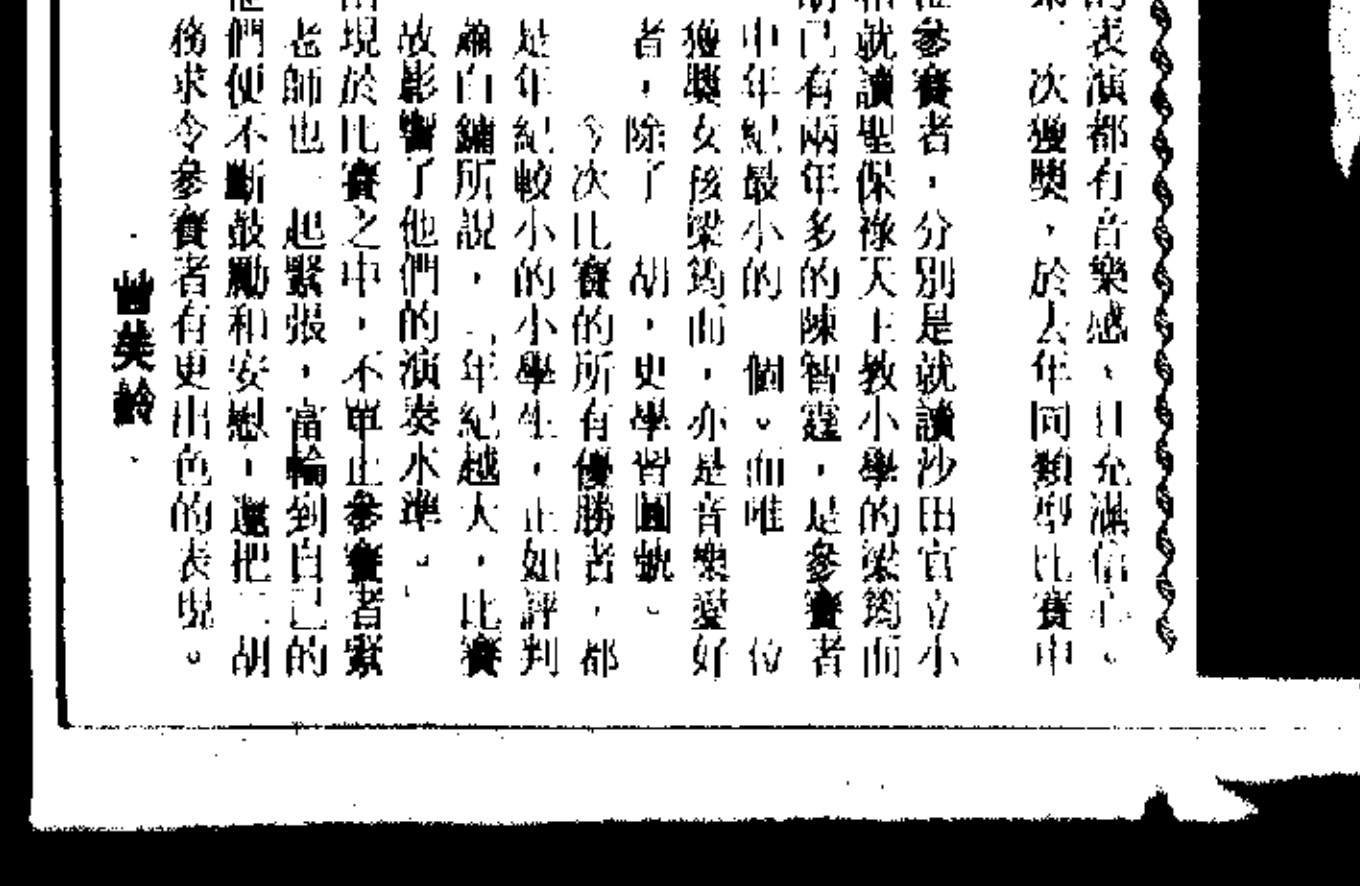 的表演都有音樂感、且充滿信心。
次獲獎,於去年同類型比賽中
參賽者,分別是就讀沙田官立小
和就讀聖保祿天主教小學的梁筠而
胡已有兩年多的陳智霆,是參賽者
中年紀最小的一個。而唯一位
獲獎女孩梁筠而,亦是音樂愛好
者,除了二胡,更學習圓號。
今次比賽的所有優勝者,都
是年紀較小的小學生,正如評判
蕭白鏞所說,「年紀越大,比賽
故影響了他們的演奏水準。」
出現於比賽之中,不單止參賽者緊
老師也一起緊張,當輪到自己的
他們便不斷鼓勵和安慰,還把二胡
務求令參賽者有更出色的表現。
·曾美齡·